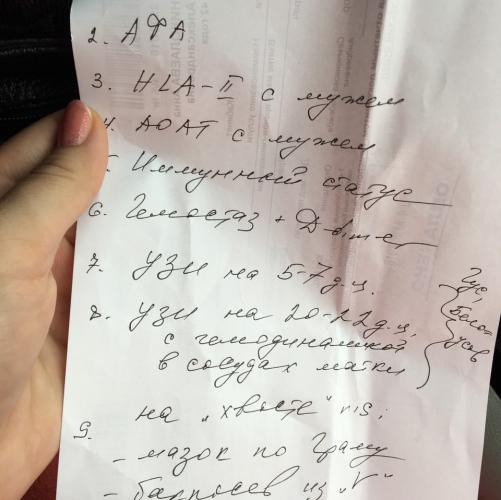 2. АФА
3. HLA-II с мужем
4. АОАТ с мужем
Иммунный статус
6. Гемостаз + Д-димер
7. УЗИ на 5-7 д.ц.
8. УЗИ на 20-22 д.ц.
с гемодинамикой
в сосудах матки
Гус,
Бело
усов
9. на "хвосте" ms;
- мазок по Граму
- бакпосев из "V"